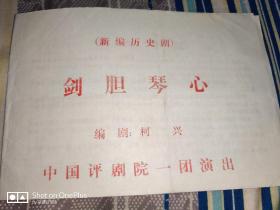 (新编历史剧)
剑胆琴心
编剧:柯兴
中国评剧院一团演出
Shot on OnePlus